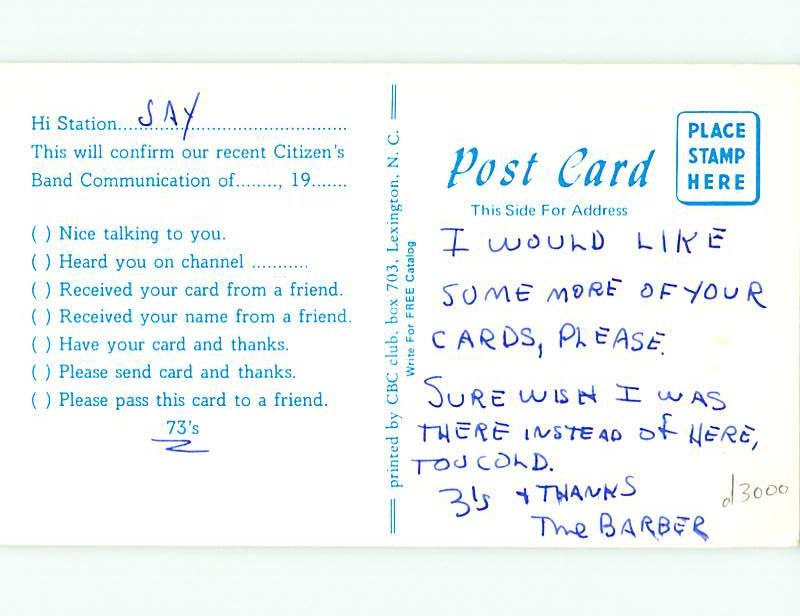 Hi Station....SAY....
This will confirm our recent Citizen's
Band Communication of........, 19.......
( ) Nice talking to you.
( ) Heard you on channel ...........
( ) Received your card from a friend.
( ) Received your name from a friend.
( ) Have your card and thanks.
( ) Please send card and thanks.
( ) Please pass this card to a friend.
73's
printed by CBC club, box 703, Lexington, N. C.
Write For FREE Catalog
Post Card
This Side For Address
PLACE
STAMP
HERE
I WOULD LIKE
SOME MORE OF YOUR
CARDS, PLEASE.
SURE WISH I WAS
THERE INSTEAD OF HERE,
TOO COLD.
3's + THANKS
The BARBER
d3000